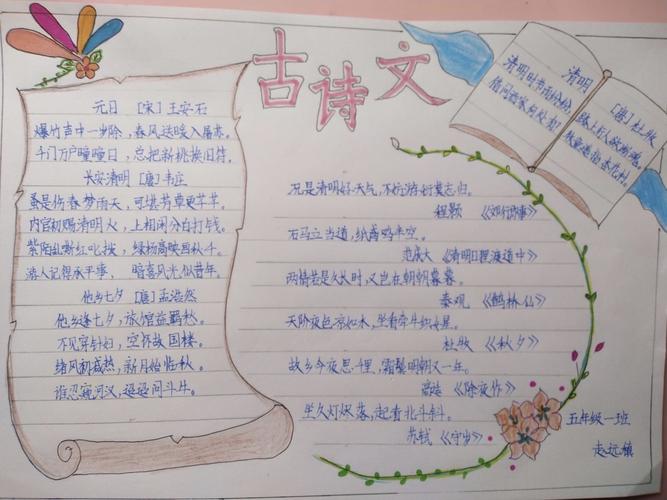 古诗文
元日 [宋] 王安石
爆竹声中一岁除，春风送暖入屠苏。
千门万户曈曈日，总把新桃换旧符。
长安清明 [唐] 韦庄
蚤是伤春梦雨天，可堪芳草更芊芊。
内官初赐清明火，上相闲分白打钱。
紫陌乱嘶红叱拨，绿杨高映画秋千。
游人记得承平事，暗喜风光似昔年。
他乡七夕 [唐] 孟浩然
他乡逢七夕，旅馆益羁愁。
不见穿针妇，空怀故国楼。
绪风初减热，新月始临秋。
谁忍窥河汉，迢迢问斗牛。
清明
[唐] 杜牧
清明时节雨纷纷，
路上行人欲断魂。
借问酒家何处有，
牧童遥指杏花村。
况是清明好天气，不妨游衍莫忘归。
程颢 《郊行即事》
石马立当道，纸鸢鸣半空。
范成大 《清明日狸渡道中》
两情若是久长时，又岂在朝朝暮暮。
秦观 《鹊桥仙》
天阶夜色凉如水，坐看牵牛织女星。
杜牧 《秋夕》
故乡今夜思千里，霜鬓明朝又一年。
高适 《除夜作》
坐久灯烬落，起看北斗斜。
苏轼 《守岁》
五年级一班